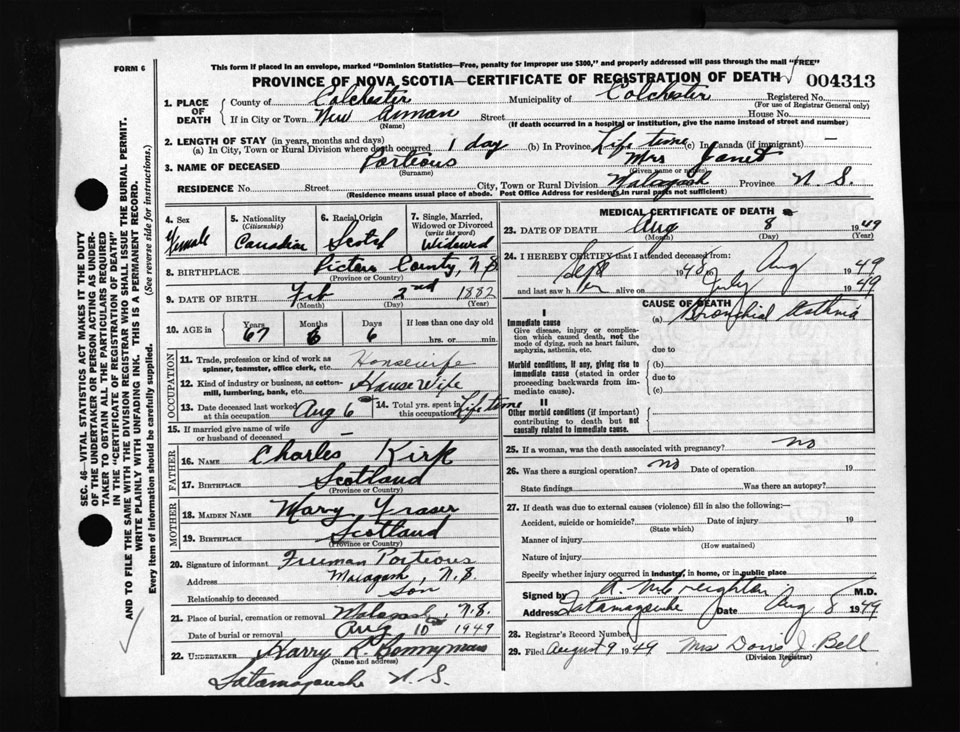 FORM 6
This form if placed in an envelope, marked "Dominion Statistics—Free, penalty for improper use $300," and properly addressed will pass through the mail "FREE"
PROVINCE OF NOVA SCOTIA—CERTIFICATE OF REGISTRATION OF DEATH 004313
1. PLACE OF DEATH County of Colchester Municipality of Colchester Registered No.
(For use of Registrar General only)
If in City or Town New Annan Street House No.
(Name) (If death occurred in a hospital or institution, give the name instead of street and number)
2. LENGTH OF STAY (in years, months and days)
(a) In City, Town or Rural Division where death occurred 1 day (b) In Province Life time (c) In Canada (if immigrant) –
3. NAME OF DECEASED Porteous Mrs Janet
(Surname) (Given name or names)
RESIDENCE No. Street City, Town or Rural Division Malagash Province N. S.
(Residence means usual place of abode. Post Office Address for residents in rural parts not sufficient)
4. Sex Female
5. Nationality (Citizenship) Canadian
6. Racial Origin Scotch
7. Single, Married, Widowed or Divorced (write the word) Widowed
8. BIRTHPLACE Pictou County, N.S.
(Province or Country)
9. DATE OF BIRTH Feb 2nd 1882
(Month) (Day) (Year)
10. AGE in Years Months Days If less than one day old
67 6 6 hrs. or min.
OCCUPATION
11. Trade, profession or kind of work as spinner, teamster, office clerk, etc. Housewife
12. Kind of industry or business, as cotton-mill, lumbering, bank, etc. House Wife
13. Date deceased last worked at this occupation Aug 6th 14. Total yrs. spent in this occupation Life time
15. If married give name of wife or husband of deceased –
FATHER
16. NAME Charles Kirk
17. BIRTHPLACE Scotland
(Province or Country)
MOTHER
18. MAIDEN NAME Mary Fraser
19. BIRTHPLACE Scotland
(Province or Country)
20. Signature of informant Freeman Porteous
Address Malagash, N.S.
Relationship to deceased Son
21. Place of burial, cremation or removal Malagash, N.S.
Date of burial or removal Aug 10th 1949
22. UNDERTAKER Harry R. Bonnyman
(Name and address)
Tatamagouche N. S.
MEDICAL CERTIFICATE OF DEATH
23. DATE OF DEATH Aug 8 1949
(Month) (Day) (Year)
24. I HEREBY CERTIFY that I attended deceased from:
Sept 8 1948 to Aug 1949
and last saw her alive on July 1949
CAUSE OF DEATH
I
Immediate cause (a) Bronchial Asthma
Give disease, injury or complication which caused death, not the mode of dying, such as heart failure, asphyxia, asthenia, etc.
due to
Morbid conditions, if any, giving rise to immediate cause (stated in order proceeding backwards from immediate cause). (b)
due to
(c)
II
Other morbid conditions (if important) contributing to death but not causally related to immediate cause.
25. If a woman, was the death associated with pregnancy? no
26. Was there a surgical operation? no Date of operation 19
State findings Was there an autopsy?
27. If death was due to external causes (violence) fill in also the following:—
Accident, suicide or homicide? Date of injury 19
(State which)
Manner of injury
(How sustained)
Nature of injury
Specify whether injury occurred in industry, in home, or in public place
Signed by A. M. Creighton M.D.
Address Tatamagouche Date Aug 8 1949
28. Registrar's Record Number
29. Filed August 9 1949 Mrs Doris J. Bell
(Division Registrar)
SEC. 46—VITAL STATISTICS ACT MAKES IT THE DUTY
OF THE UNDERTAKER OR PERSON ACTING AS UNDER-
TAKER TO OBTAIN ALL THE PARTICULARS REQUIRED
IN THE "CERTIFICATE OF REGISTRATION OF DEATH"
AND TO FILE THE SAME WITH THE DIVISION REGISTRAR WHO SHALL ISSUE THE BURIAL PERMIT.
WRITE PLAINLY WITH UNFADING INK. THIS IS A PERMANENT RECORD.
Every item of information should be carefully supplied. (See reverse side for instructions.)